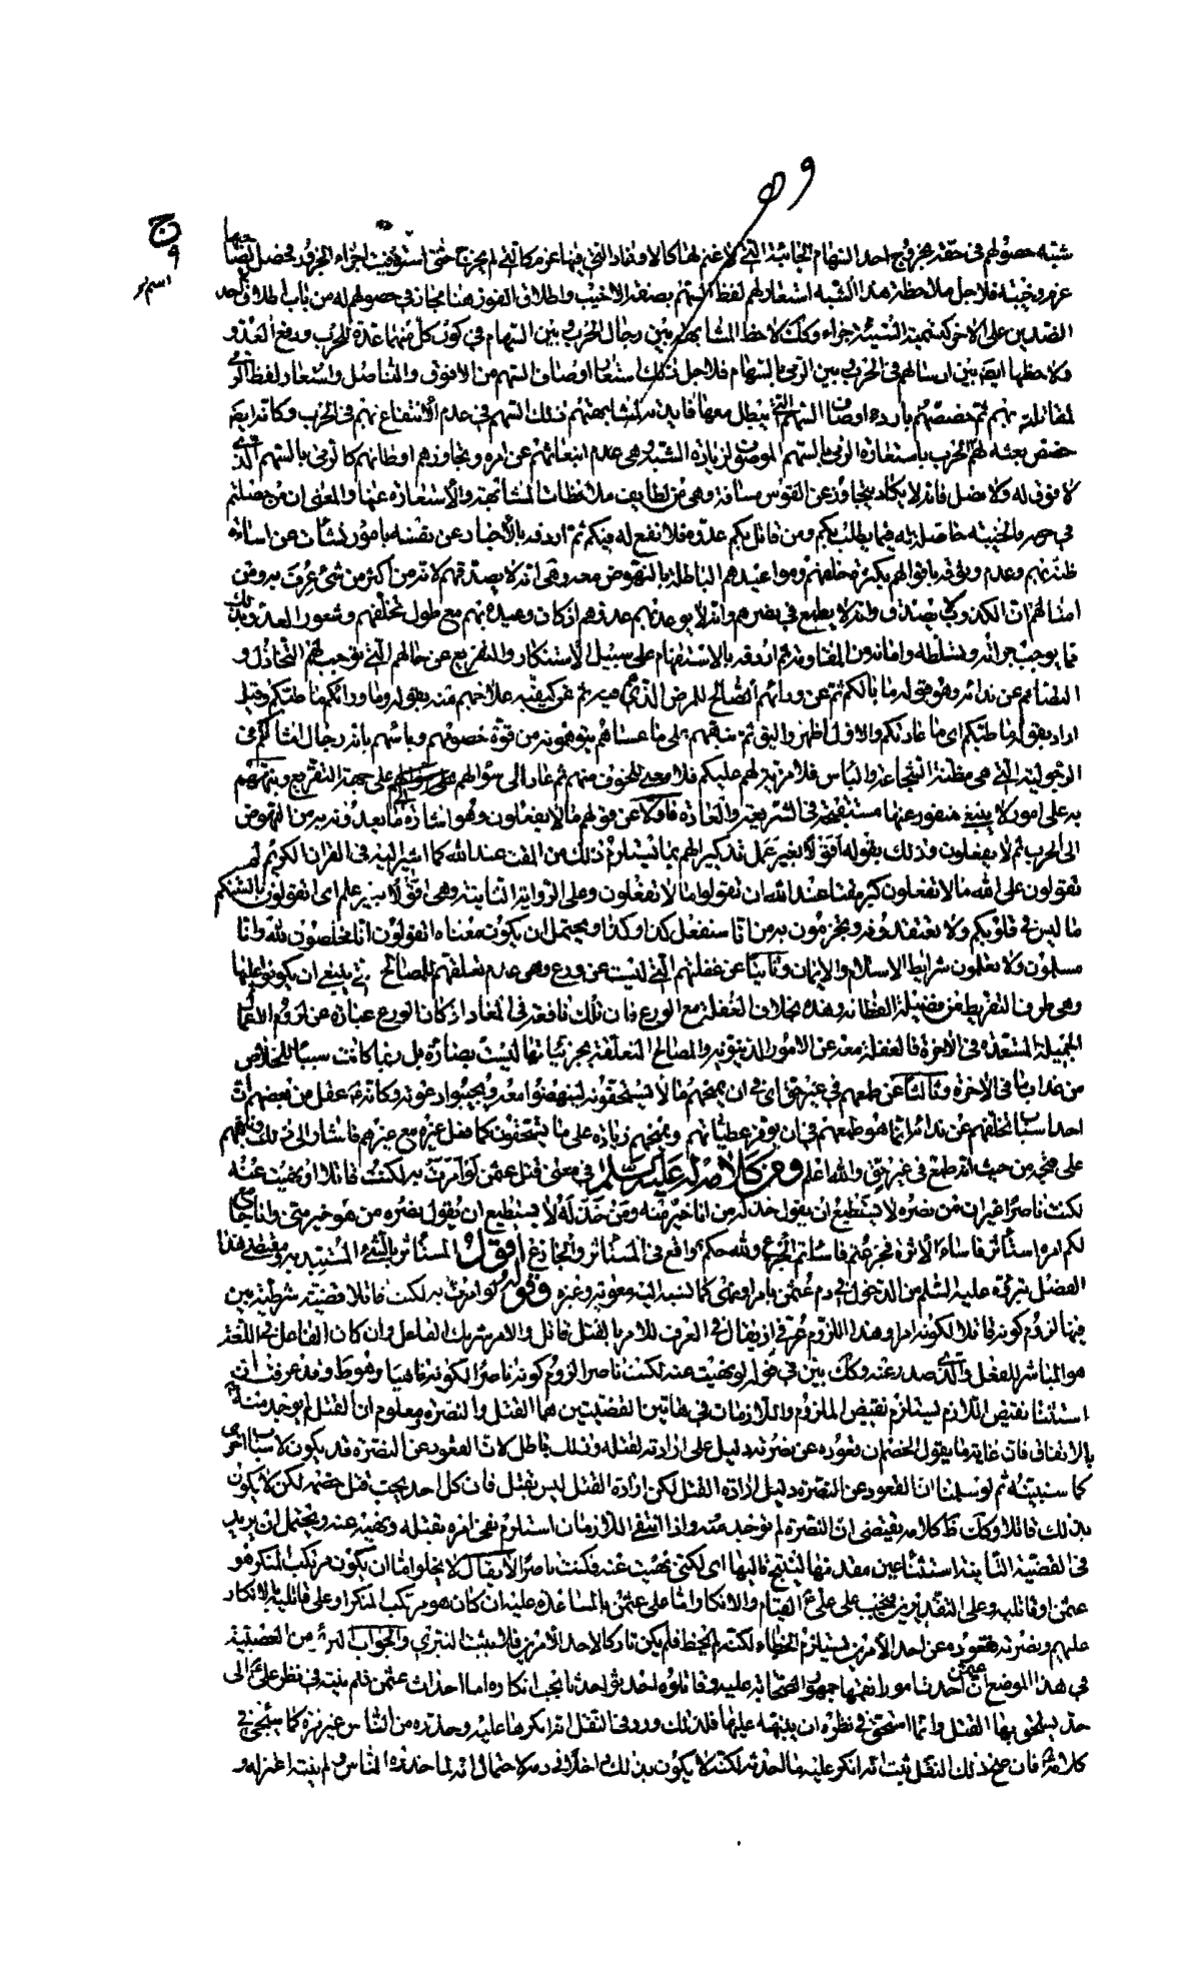 وهو
ج
و
شبه حصولهم في حقه بخروج احد السهام الخائبة التي لا غنم لها كالاوغاد التي فيها غرم كالتي لم يخرج حتى استوفيت اجزاء الجزور فحصل لصاحبها
غرم وخيبة فلاجل ملاحظة هذا الشبه استعار لهم لفظ السهم بصفة الاخيب واطلاق الفوز هنا مجاز في حصولهم له من باب اطلاق احد
الضدين على الاخر كتسمية السيئة جزاء وكذلك لاحظ المشابهة بين رجال الحرب وبين السهام في كون كل منهما عدة للحرب ودفع العدو و
لاحظها ايضا بين ارسالهم في الحرب وبين الرمي بالسهام فلاجل ذلك استعار اوصاف السهم من الافوق والناصل واستعار لفظ الرمي
لمقاتلته بهم ثم خصصهم باردء اوصاف السهم التي يبطل معها فايدته لمشابهتهم ذلك السهم في عدم الانتفاع بهم في الحرب وكانه ايضا
خصص بعثه لهم الى الحرب باستعارة الرمي بالسهم الموصوف لزيادة الشبه وهي عدم انبعاثهم عن امره وتجاوزهم اوطانهم كالرمي بالسهم الذي
لا فوق له ولا نصل فانه لا يكاد يتجاوز عن القوس مسافة وهي من لطايف ملاحظات المشابهة والاستعارة عنها والمعنى ان من حصلتم
في حوزته فالخيبة حاصلة له فيما يطلب بكم ومن قاتل بكم عدوه فلا نفع له فيكم ثم اردفه بالاخبار عن نفسه بامور نشأت عن اساءة
ظنه بهم وعدم وثوقه باقوالهم لكثرة خلفهم ومواعيدهم الباطلة بالنهوض معه وهي انه لا يصدقهم لانه من اكثر من شيء عرف به ومن
امثالهم ان الكذوب لا يصدق وانه لا يطمع في نصرهم وانه لا يوعد بهم عدوهم اذ كان وعيده بهم مع طول تخلفهم وشعور العدو بذلك
مما يوجب جرأته وتسلطه وامانه من المقاومة ثم اردفه بالاستفهام على سبيل الاستنكار والتقريع عن حالهم التي توجب لهم التخاذل و
التصامم عن ندائه وهو قوله ما بالكم ثم عن دوائهم الصالح للمرض الذي هم فيه ثم عن كيفية علاجهم منه بقوله وما دوائكم ما طبكم وقيل
اراد بقوله ما طبكم اي ما عادتكم والاول اظهر واليق ثم نبههم على ما عساهم يتوهمونه من قوة خصومهم وبأسهم بانه رجال امثالكم في
الرجولية التي هي مظنة الشجاعة والبأس فلا مزية لهم عليكم فلا معنى للخوف منهم ثم عاد الى سؤالهم على جهة التقريع وينبههم
به على امور لا ينبغي منفور عنها مستقبحة في الشريعة والعادة فاولا عن قولهم ما لا يفعلون وهو اشارة الى ما يعدونه به من النهوض
الى الحرب ثم لا يفعلون وذلك بقوله اقولا بغير عمل تذكيرا لهم بما يستلزم ذلك من المقت عند الله كما اشير اليه في القران الكريم لم
تقولون على الله ما لا تفعلون كبر مقتا عند الله ان تقولوا ما لا تفعلون وعلى الرواية الثانية وهي اقولا بغير علم اي اتقولون بالسنتكم
ما ليس في قلوبكم ولا تعتقدونه وتجزمون به من انا سنفعل كذا وكذا ويحتمل ان يكون معناه اتقولون انا مخلصون لله وانا
مسلمون ولا تعلمون شرايط الاسلام والايمان وثانيا عن غفلتهم التي ليست عن ورع وهي عدم تعلقهم للمصالح التي ينبغي ان يكونوا عليها
وهي طرف التفريط من فضيلة الفطانة وهذه بخلاف الغفلة مع الورع فان تلك نافعة في المعاد اذ كان الورع عبارة عن لزوم الاعمال
الجميلة المستعدة في الاخرة فالغفلة معه عن الامور الدنيوية والمصالح المتعلقة بجزئياتها ليست بضارة بل ربما كانت سببا للخلاص
من عذاب ما في الاخرة وثالثا عن طمعهم في غير حق اي في ان يمنحهم ما لا يستحقونه لينهضوا معه ويجيبوا دعوته وكانه عقل من بعضهم ان
احد اسباب تخلفهم عن ندائه انما هو طمعهم في ان يوفر عطياتهم ويمنحهم زيادة على ما يستحقون كما فعل غيره مع غيرهم فاشار الى ذلك ونبههم
على قبحه من حيث انه طمع في غير حق والله اعلم ومن كلام له عليه السلام في معنى قتل عثمن لو امرت به لكنت قاتلا او نهيت عنه
لكنت ناصرا غير ان من نصره لا يستطيع ان يقول خذله من انا خير منه ومن خذله لا يستطيع ان يقول نصره من هو خير مني وانا جامع
لكم امره استأثر فاساء الاثرة وجزعتم فاسأتم الجزع ولله حكم واقع في المستأثر والجازع اقول المستأثر بالشيء المستبد به ومقتضى هذا
الفصل تبرئه عليه السلام من الدخول في دم عثمن بامر او نهي كما نسبه اليه معوية وغيره وقوله لو امرت به لكنت قاتلا قضية شرطية بين
فيها لزوم كونه قاتلا لكونه امرا وهذا اللزوم عرفي اذ يقال في العرف للامر بالقتل قاتل والامر شريك الفاعل وان كان الفاعل في اللغة
هو المباشر للفعل والذي صدر عنه وكذلك بين في قوله او نهيت عنه لكنت ناصرا لزوم كونه ناصرا لكونه ناهيا وهو ظ وقد عرفت ان
استثناء نقيض اللازم يستلزم نقيض الملزوم واللازمان في هاتين القضيتين هما القتل والنصرة ومعلوم ان القتل لم يوجد منه
بالاتفاق فان غاية ما يقول الخصم ان قعوده عن نصرته دليل على ارادته لقتله وذلك باطل لان القعود عن النصرة قد يكون لاسباب اخرى
كما سنبينه ثم لو سلمنا ان القعود عن النصرة دليل ارادة القتل لكن ارادة القتل ليس بقتل فان كل احد يحب قتل خصمه لكن لا يكون
بذلك قاتلا وكذلك ظ كلامه يقتضي ان النصرة لم توجد منه واذا انتفى اللازمان استلزم نفي امره بقتله ونهيه عنه ويحتمل ان يريد
في القضية الثانية استثناء عين مقدمها لينتج تاليها اي لكني نهيت عنه فكنت ناصرا لا يقال لا يخلو اما ان يكون مرتكب المنكر هو
عثمن او قاتليه وعلى التقديرين فيجب على علي ع القيام والانكار اما على عثمن بالمساعدة عليه ان كان هو مرتكب المنكر او على قاتليه بالانكار
عليهم ونصرته فقعوده عن احد الامرين يستلزم الخطاء لكنه لم يخط فلم يكن تاركا لاحد الامرين فلا يثبت التبري والجواب البرئ من العصبية
في هذا الموضع ان عثمن احدث امورا نقمها جمهور الصحابة عليه وقاتلوه احدثوا حدثا يجب انكاره اما احداث عثمن فلم ينته في نظر علي ع الى
حد يستحق بها القتل وانما استحق في نظره ان ينبهه عليها فلذلك ورد في النقل انه انكرها عليه وحذره من الناس غير مرة كما سيجئ في
كلامه فان صح ذلك النقل ثبت انه انكر عليه ما احدثه لكنه لا يكون بذلك داخلا في دمه لاحتمال انه لما حذره الناس ولم ينته اعتزله و